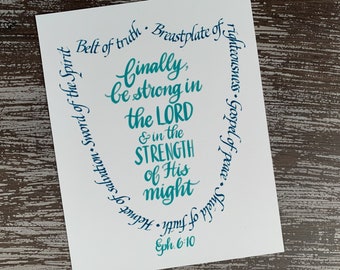 Belt of truth • Breastplate of righteousness • Gospel of peace • Shield of faith • Helmet of salvation • Sword of the Spirit
finally,
be strong in
the LORD
& in the
STRENGTH
of His
might
Eph. 6:10